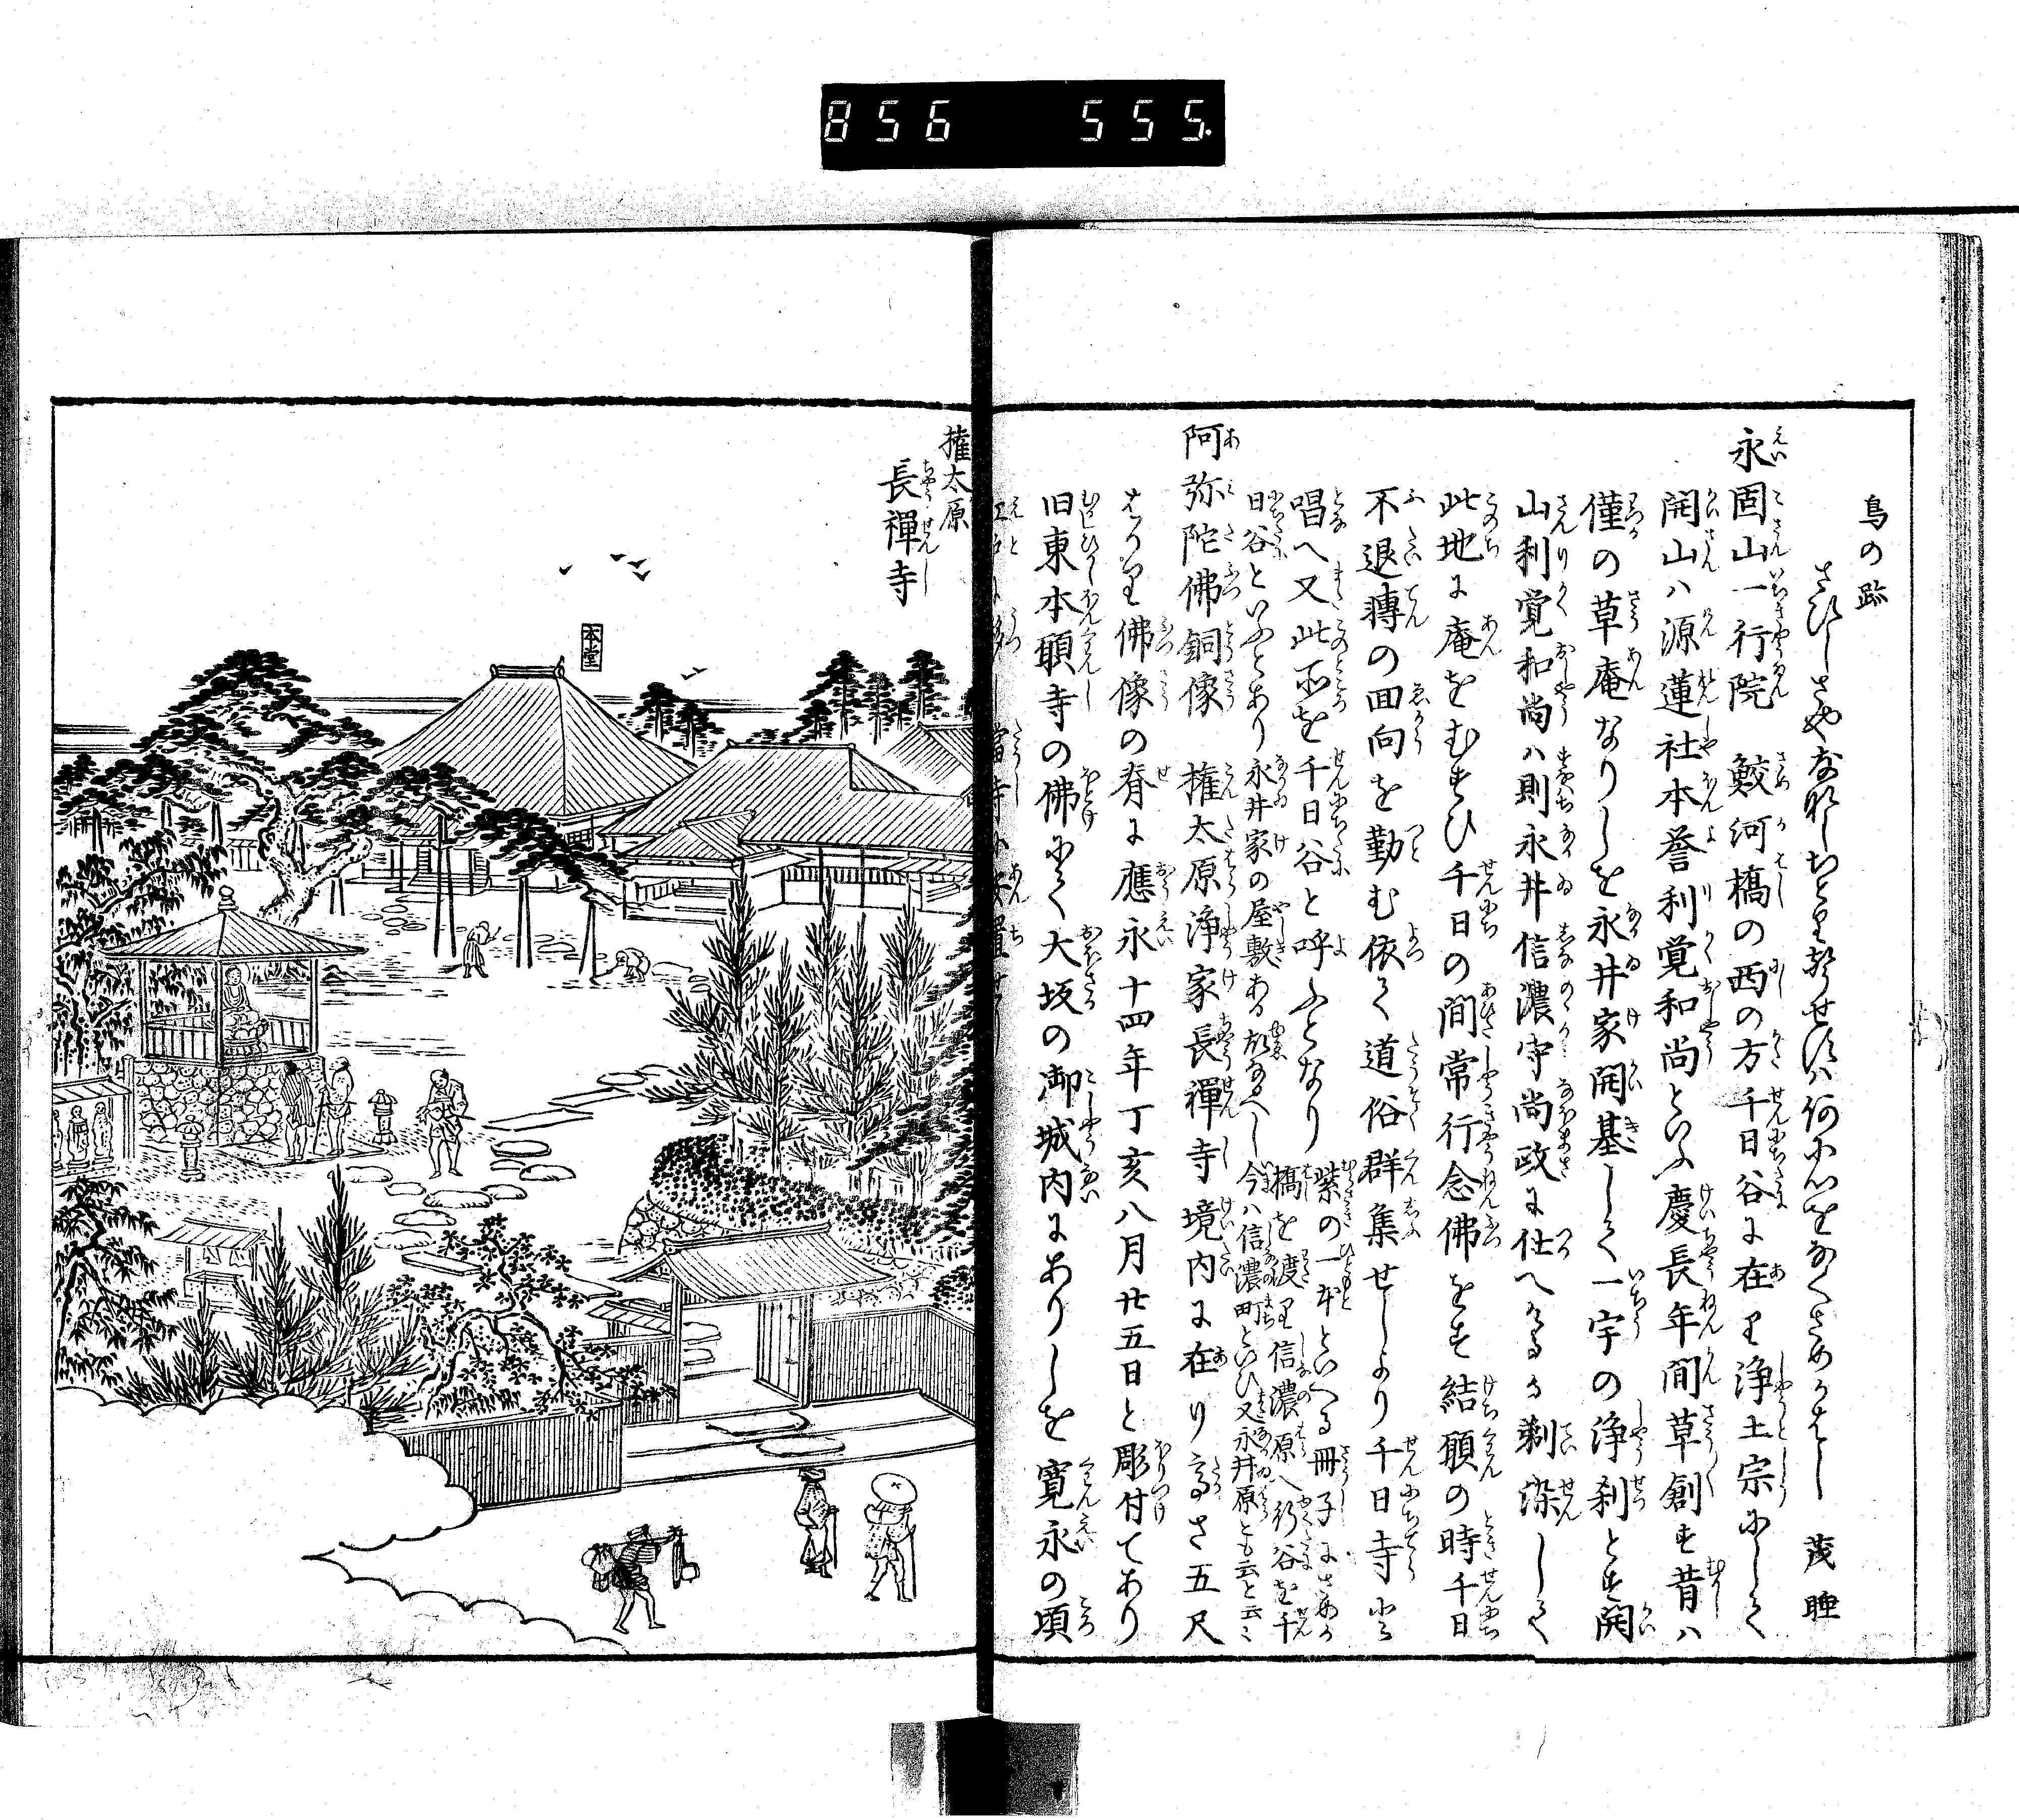 856 555.
鳥の跡
茂睡
永固山一行院 鮫河橋の西の方千日谷に在り浄土宗にして
開山ハ源蓮社本誉利覚和尚といふ慶長年間草創す昔ハ
僅の草庵なりしを永井家開基して一宇の浄刹とす開
山利覚和尚ハ則永井信濃守尚政に仕へけるか剃染して
此地に庵をむすひ千日の間常行念佛をす結願の時千日
不退轉の回向を勤む依て道俗群集せしより千日寺と
唱へ又此所を千日谷と呼ふとなり
紫の一本といへる冊子にさめか
橋を渡り信濃原へ行谷を千
日谷といふとあり永井家の屋敷ある故なるへし今ハ信濃町といひ又永井原とも云と云ミ
阿弥陀佛銅像 権太原浄家長禪寺境内に在り高さ五尺
はかり佛像の脊に應永十四年丁亥八月廿五日と彫付てあり
旧東本願寺の佛にて大坂の御城内にありしを寛永の頃
権太原
長禪寺
本堂